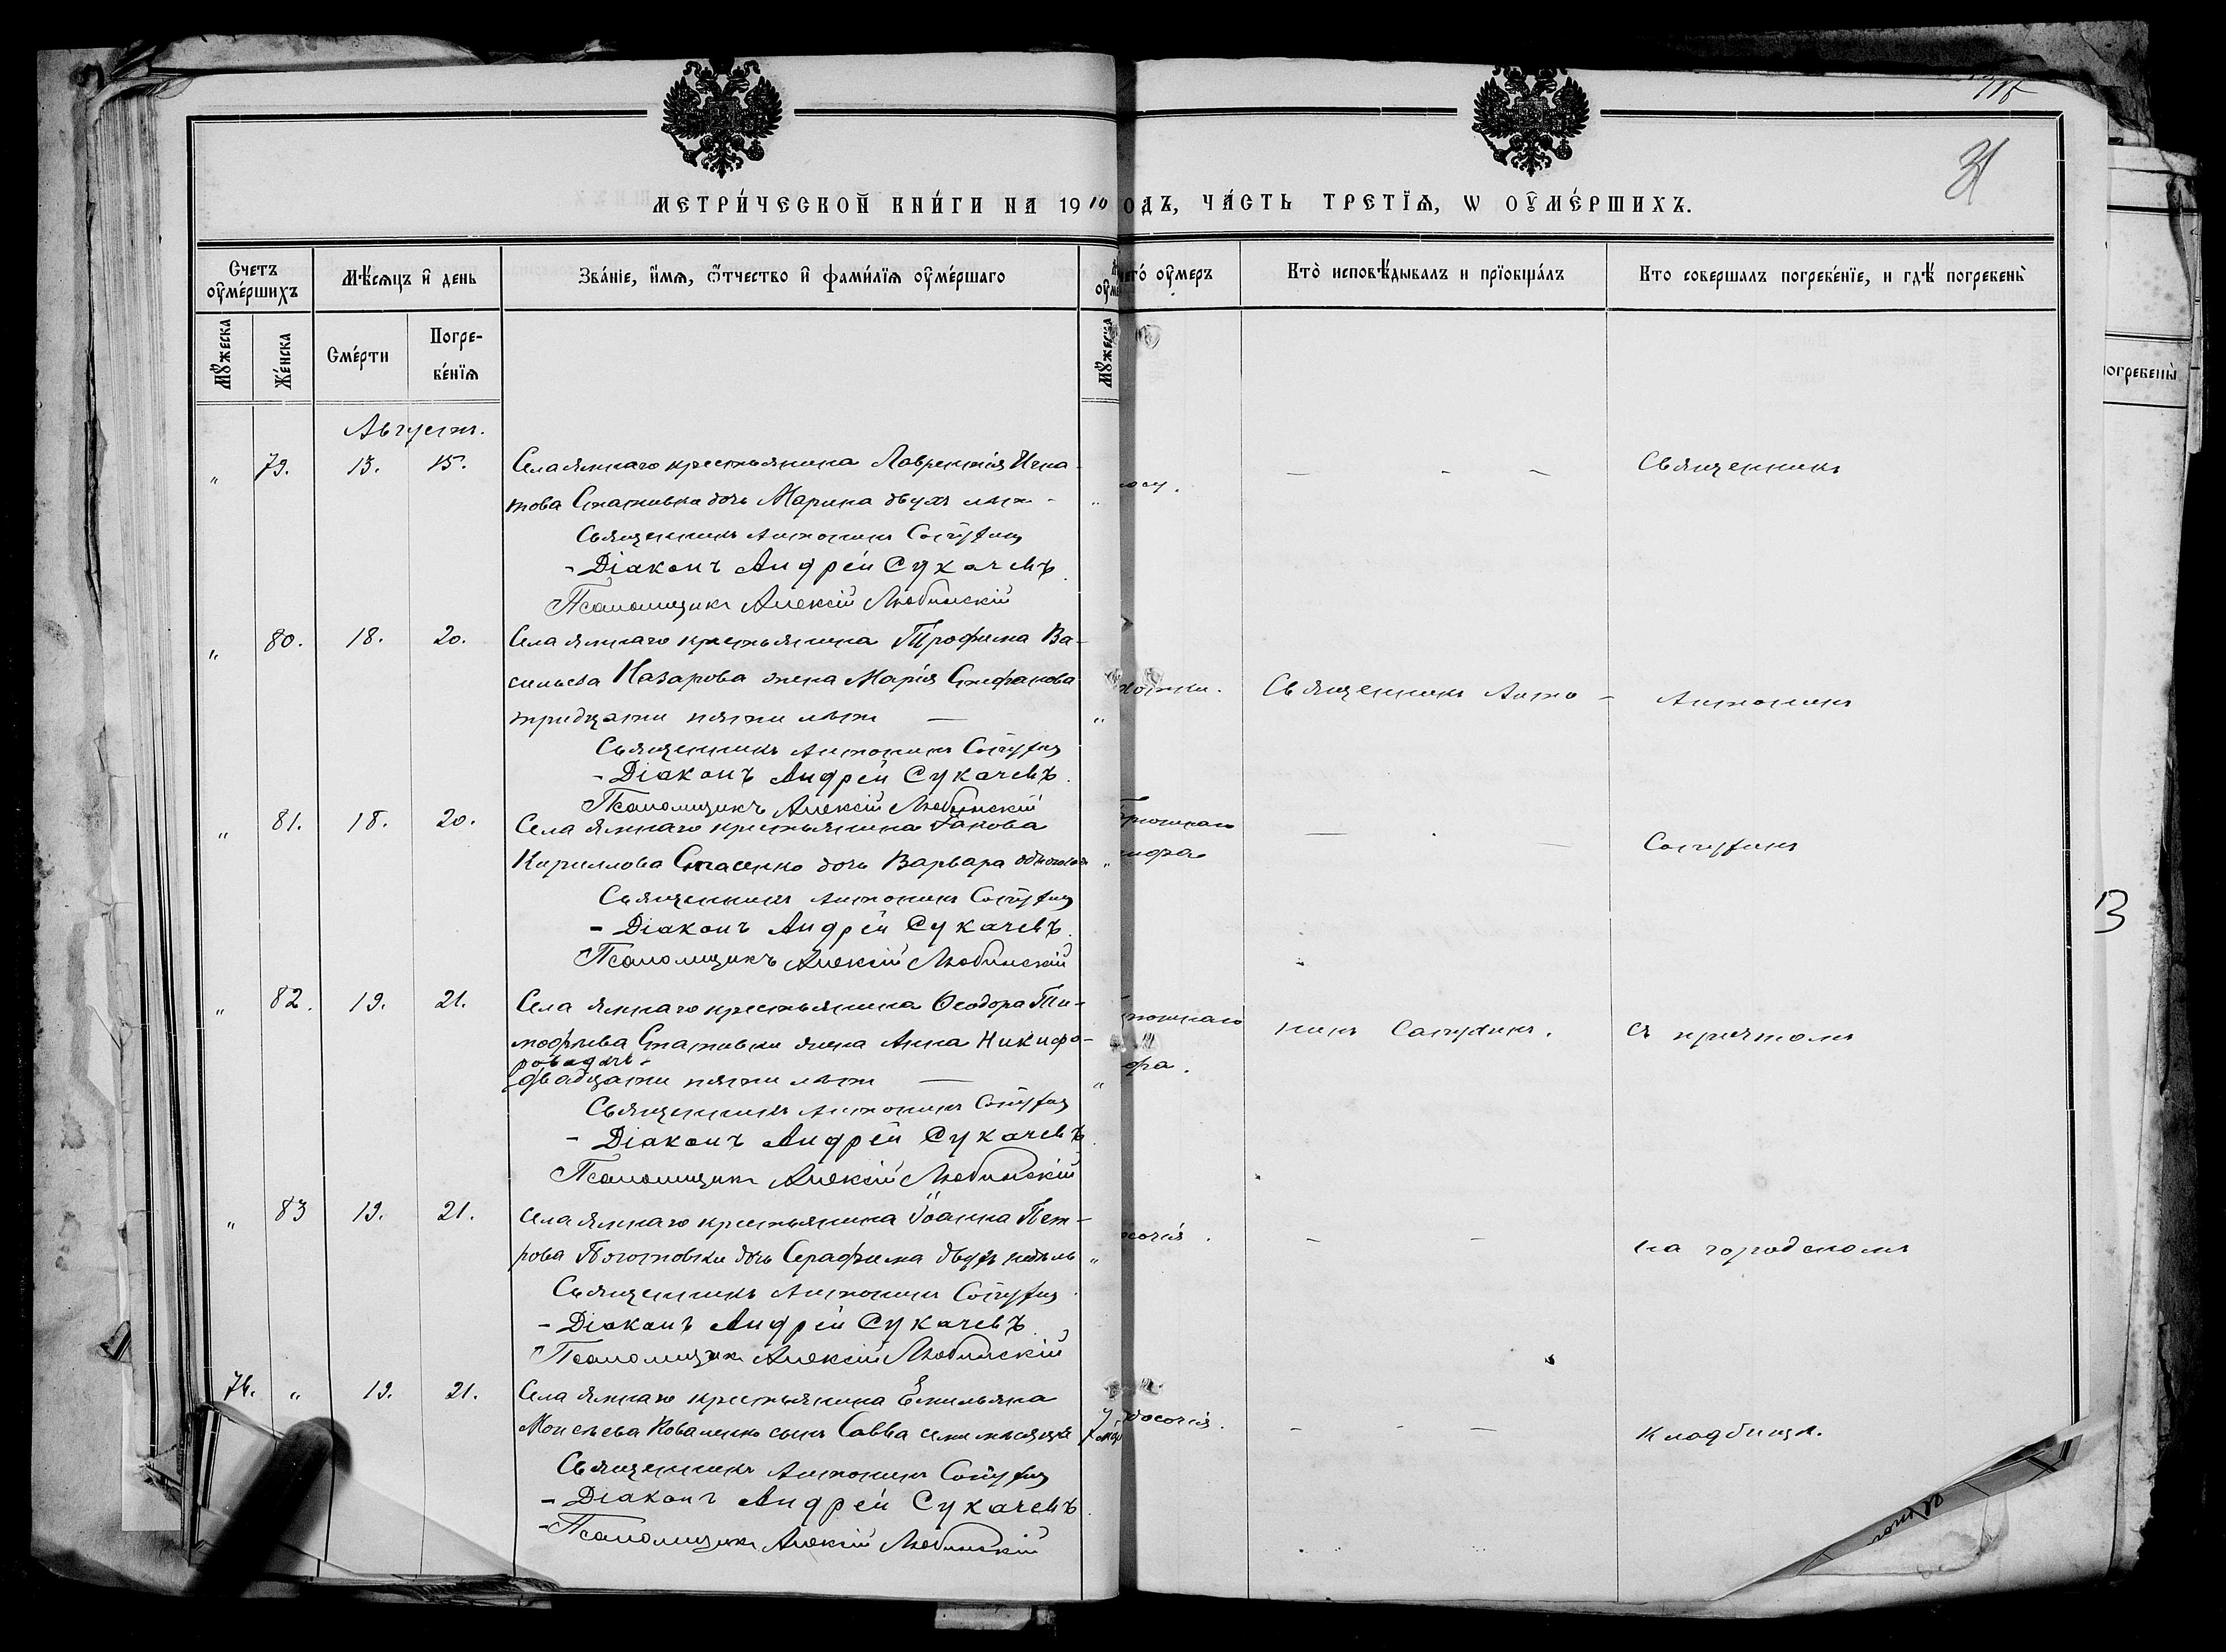 МЕТРИ́ЧЕСКОЙ КНИ́ГИ НА 1910 ОДЪ, ЧА́СТЬ ТРЕТЇѦ, Ѡ ОУ҆МЕ́РШИХЪ.
31
Счетъ оу҆ме́ршихъ
Мѣ́сѧцъ и҆ день
Зва́нїе, и҆́мѧ, ѻ҆́тчество и҆ фами́лїѧ оу҆ме́ршаго
чего́ оу҆́меръ
Кто̀ исповѣ́дывалъ и прїобща́лъ
Кто совершалъ погребе́нїе, и гдѣ́ погребены̀
Мꙋ́жеска
Же́нска
Сме́рти
Погребе́нїѧ
Мꙋ́жеска
погребены̀
Августъ.
" 79. 13. 15. Села Ямнаго крестьянина Лаврентія Игна-
това дочь Марина двухъ лѣтъ -
Священникъ Антонинъ
- Діаконъ Андрей Сукачевъ.
Псаломщикъ Алексій Любинскій
- - - Священникъ
" 80. 18. 20. Села Ямнаго крестьянина Трофима Ва-
сильева Назарова жена Марія Стефанова
тридцати пяти лѣтъ —
Священникъ Антонинъ
- Діаконъ Андрей Сукачевъ.
Псаломщикъ Алексій Любинскій
Священникъ Анто- Антонинъ
" 81. 18. 20. Села Ямнаго крестьянина Іакова
Кириллова Стасенко дочь Варвара
Священникъ Антонинъ
- Діаконъ Андрей Сукачевъ.
Псаломщикъ Алексій Любинскій
" 82. 19. 21. Села Ямнаго крестьянина Ѳеодора Ти-
моѳѣева жена Анна Никифо-
рова
двадцати пяти лѣтъ —
Священникъ Антонинъ
- Діаконъ Андрей Сукачевъ.
Псаломщикъ Алексій Любинскій
нинъ съ причтомъ
" 83 19. 21. Села Ямнаго крестьянина Іоанна Пет-
рова дочь Серафима двухъ недѣль "
Священникъ Антонинъ
- Діаконъ Андрей Сукачевъ
Псаломщикъ Алексій Любинскій
- - на городскомъ
74. " 19. 21. Села Ямнаго крестьянина Емильяна
Моисеева Коваленко сынъ Савва семи мѣсяцевъ
Священникъ Антонинъ
- Діаконъ Андрей Сукачевъ.
- Псаломщикъ Алексій Любинскій
- - - кладбищѣ.